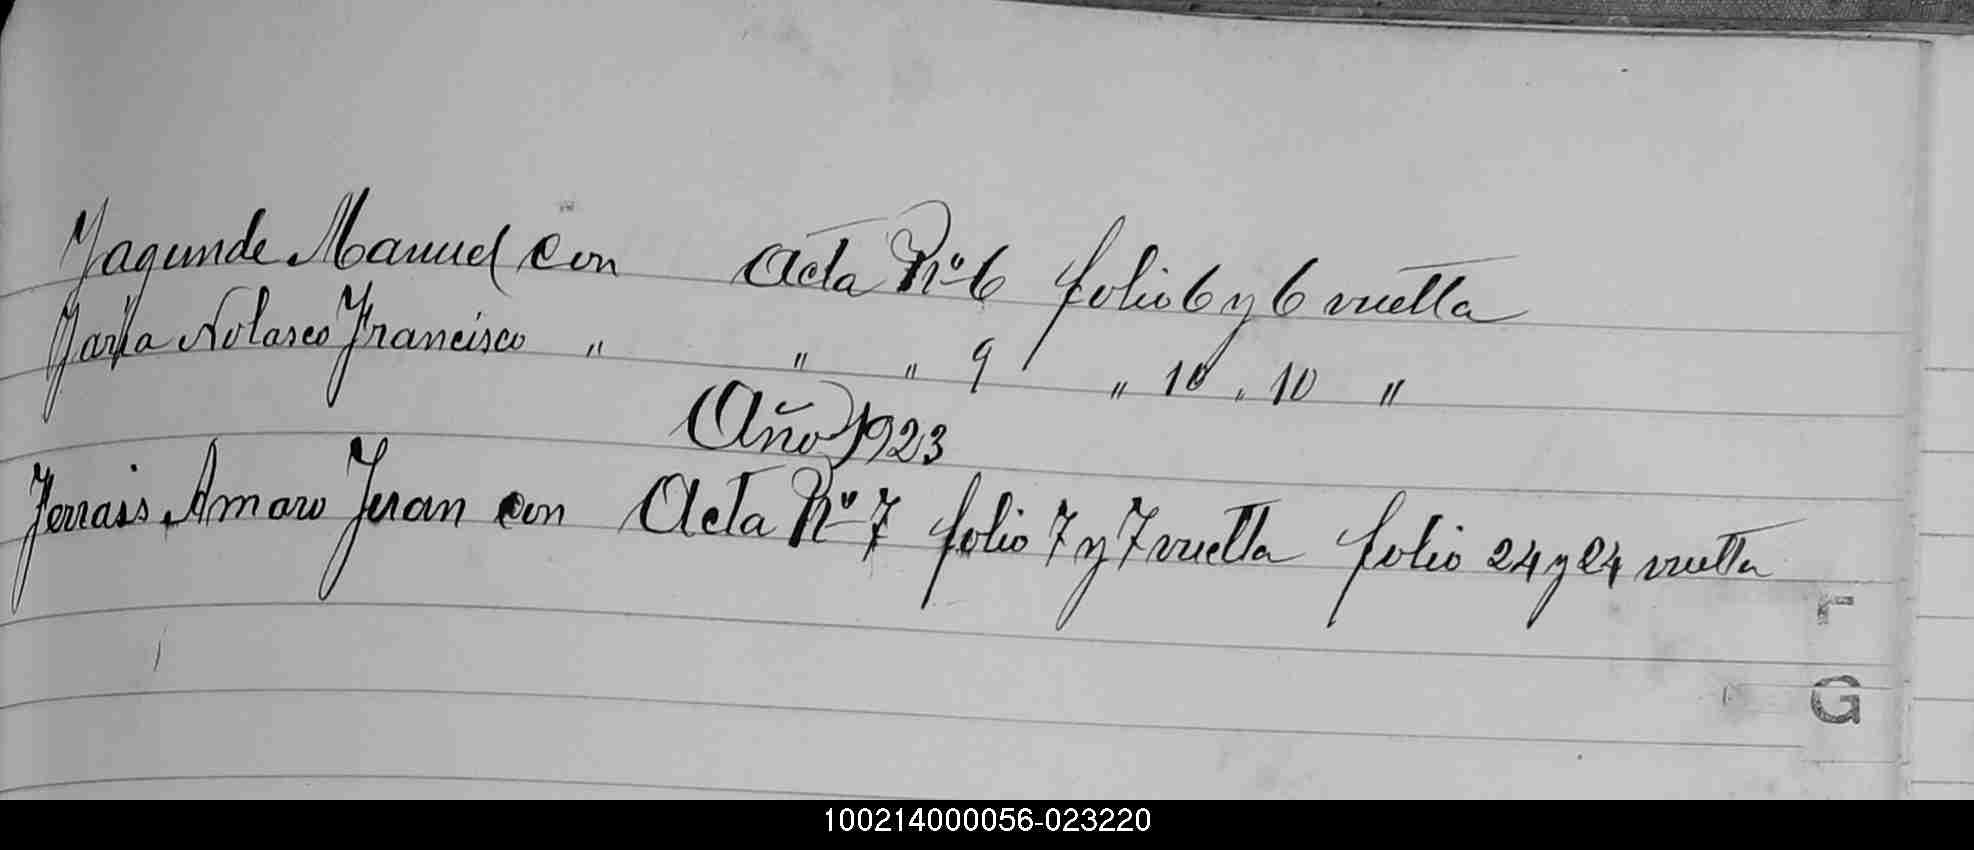 Fagunde Manuel con Acta Nº 6 folio 6 y 6 vuelta
Faria Nolasco Francisco " " " 9 " 10 " 10 "
(Año) 1923
Ferrais Amaro Juan con Acta Nº 7 folio 7 y 7 vuelta folio 24 y 24 vuelta
F
G
100214000056-023220